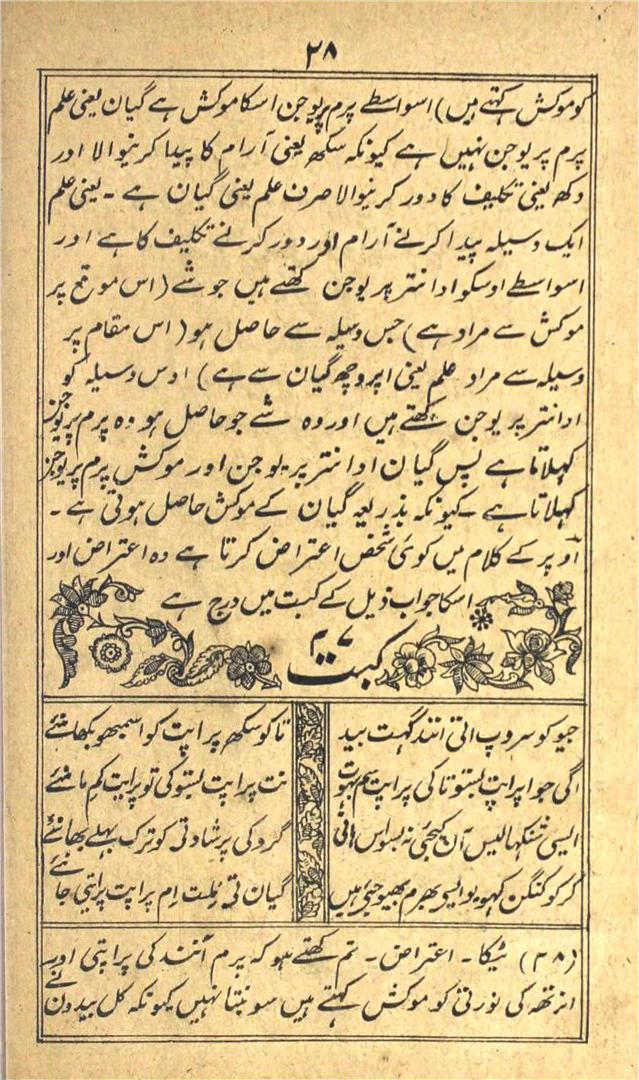 ۲۸
کو موکش کہتے ہیں) اسواسطے پرم پریوجن اسکا موکش ہے گیان یعنی علم
پرم پریوجن نہیں ہے کیونکہ سکھ یعنی آرام کا پیدا کرنیوالا اور
دکھ یعنی تکلیف کا دور کرنیوالا صرف علم یعنی گیان ہے ۔ یعنی علم
ایک وسیلہ پیدا کرنے آرام اور دور کرنے تکلیف کا ہے اور
اسواسطے اوسکو ادانتر پریوجن کھتے ہیں جو شے (اس موقع پر
موکش سے مراد ہے) جس وسیلہ سے حاصل ہو (اس مقام پر
وسیلہ سے مراد علم یعنی اپروچھ گیان سے ہے) اوس وسیلہ کو
ادانتر پریوجن کھتے ہیں اور وہ شے جو حاصل ہو وہ پرم پریوجن
کہلاتا ہے پس گیان ادانتر پریوجن اور موکش پرم پریوجن
کہلاتا ہے کیونکہ بذریعہ گیان کے موکش حاصل ہوتی ہے ۔
اوپر کے کلام میں کوئی شخص اعتراض کرتا ہے وہ اعتراض اور
اسکا جواب ذیل کے کبت میں درج ہے
کبت
جیو کو سروپ اتی انند گہت بید تاکو سکھ پراپت کو اسمبھو بکھانئے
اگی جو اپراپت بستو تا کی پراپت نت پراپت بستو کی تو پراپت کم مانئے
ایسی شنکہا لیس آن کیجئی نہ بسواس گرو کی پرشاد تی کو ترک بہلے بھانئے
کر کو کنگن کہویو ایسی بھرم بھیو گیان تی ملت ام پراپت پراپتی جانئے
(۲۸) ٹیکا ۔ اعتراض ۔ تم کھتے ہو کہ پرم آنند کی پراپتی اور
انرتھ کی نورتی کو موکش کہتے ہیں سو بنتا نہیں کیونکہ کل بیدون نے